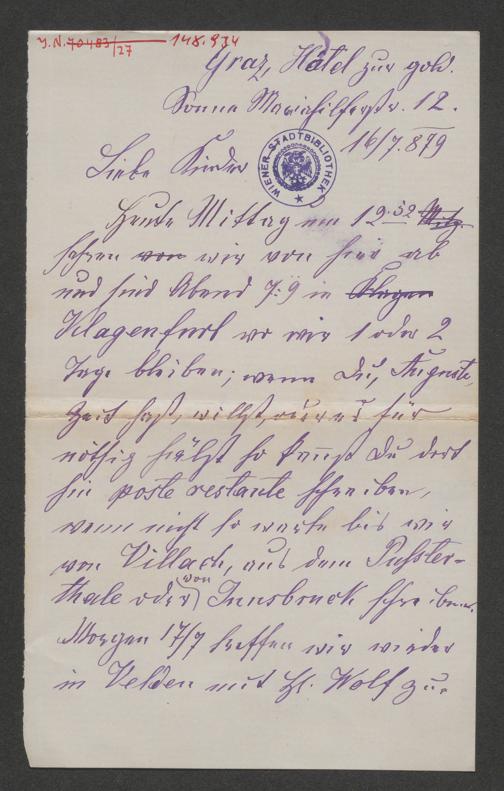 J.N. 70483/27 148.974
Graz, Hôtel zur gold.
Sonne Mariahilferstr. 12.
16/7.879
WIENER STADTBIBLIOTHEK
Liebe Kinder
Heute Mittag um 12.52 Mitg
fahren von wir von hier ab
und sind Abend 7.9 in Klagen
Klagenfurt wo wir 1 oder 2
Tage bleiben; wenn Du, Auguste,
Zeit hast, willst, oder es für
nöthig hältst so kannst Du dort
hin poste restante schreiben,
wenn nicht so warte bis wir
von Villach, aus dem Puster-
thale oder von Innsbruck schreiben.
Morgen 17/7 treffen wir wieder
in Velden mit H. Wolf zu-